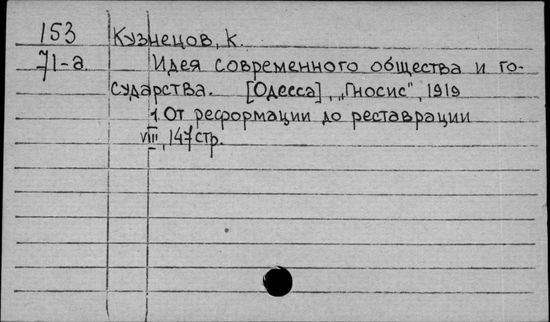 153 Кузнецов, К.
71-а Идея современного общества и го-
сударства. [Одесса], „Гносис", 1919
1. От реформации до реставрации
VIII, 147 стр.